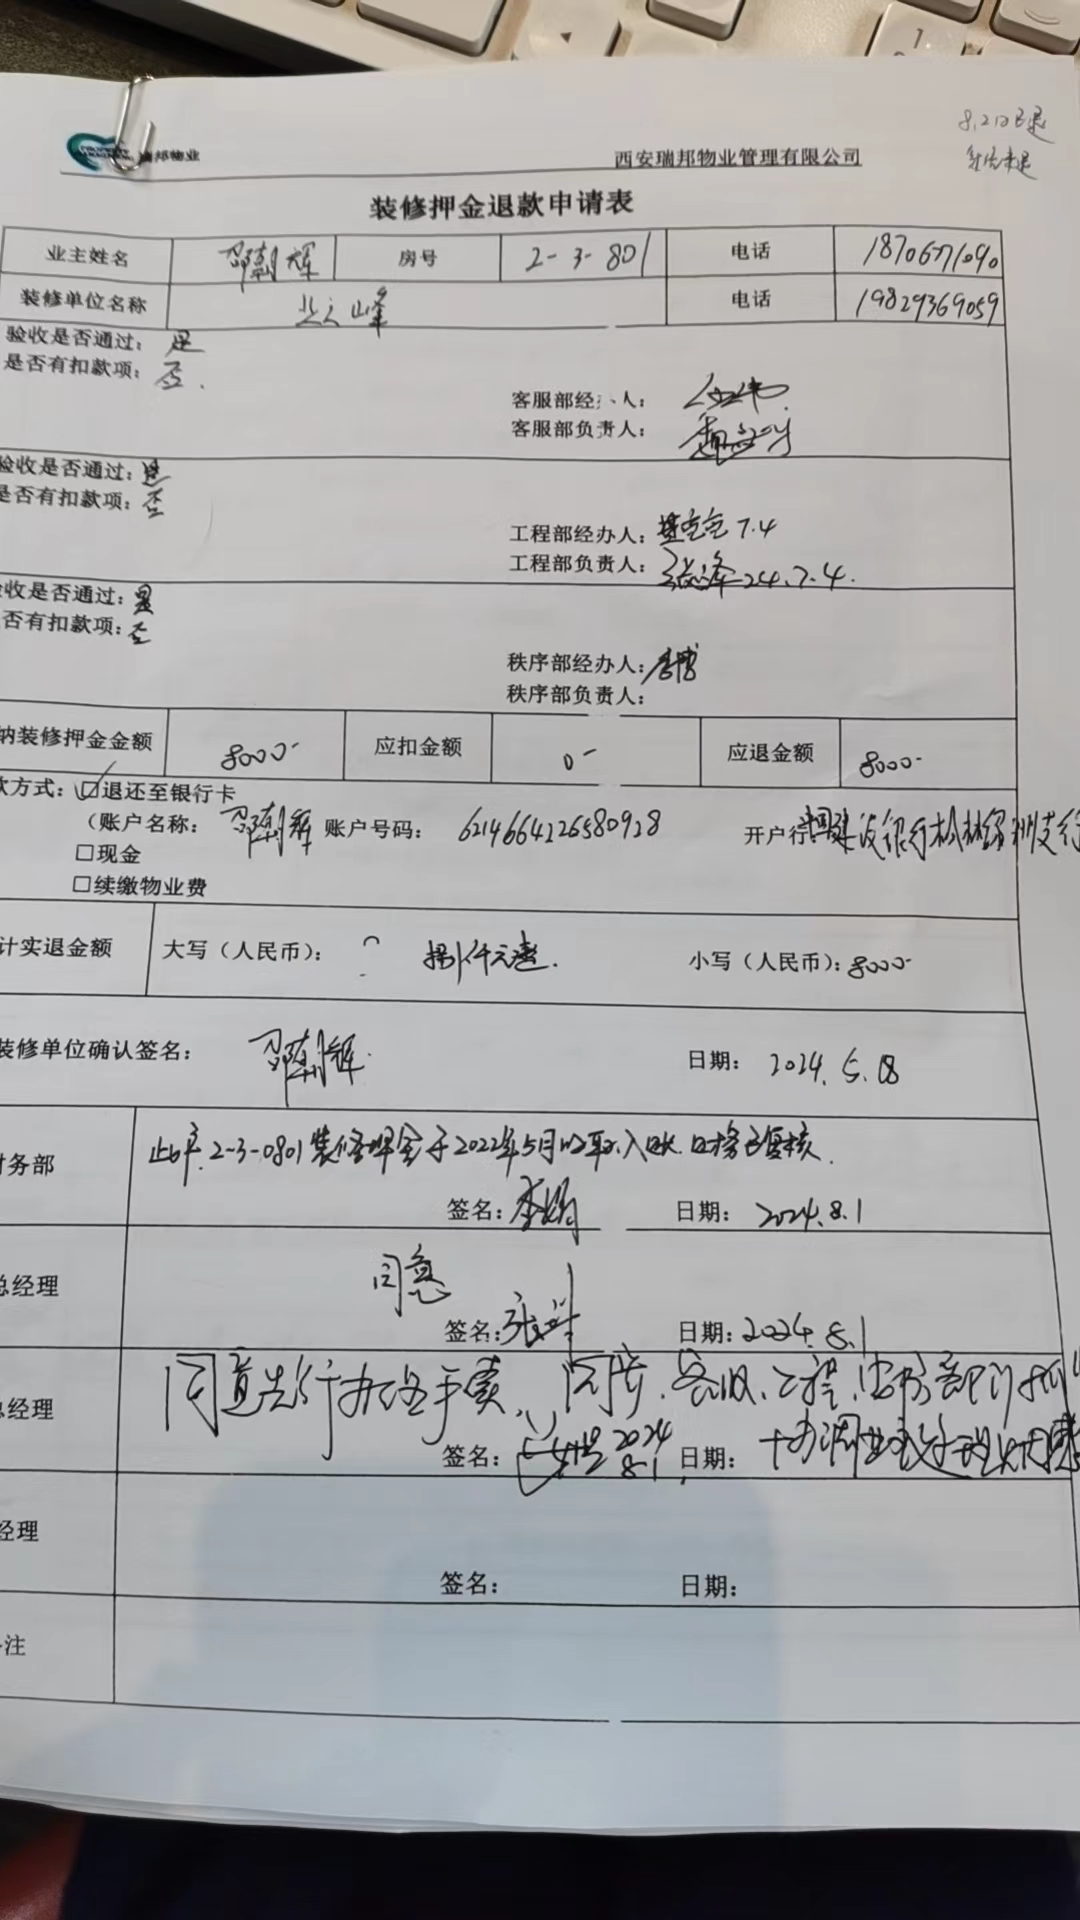 瑞邦物业 西安瑞邦物业管理有限公司
装修押金退款申请表
业主姓名 邵朝辉 房号 2-3-801 电话
装修单位名称 电话 19829369059
验收是否通过: 是
是否有扣款项: 否.
客服部经 人:
客服部负责人:
验收是否通过: 是
是否有扣款项: 否
工程部经办人: 7.4
工程部负责人: 张峰 24.7.4.
收是否通过: 是
否有扣款项: 否
秩序部经办人:
秩序部负责人:
纳装修押金金额 8000- 应扣金额 0- 应退金额 8000-
款方式: ☑退还至银行卡
(账户名称: 邵朝辉 账户号码: 6214664226580928 开户行
□现金
□续缴物业费
计实退金额 大写(人民币): 捌仟元整. 小写(人民币): 8000-
装修单位确认签名: 邵朝辉 日期: 2024.5.18
财务部 此户 2-3-0801装修押金于2022年5月 入账. 已复核.
签名: 李娟 日期: 2024.8.1
总经理 同意
签名: 日期: 2024.8.1
总经理 同意先行办理手续, 同步.客服.工程.
签名: 2024 8.1. 日期:
经理
签名: 日期:
注